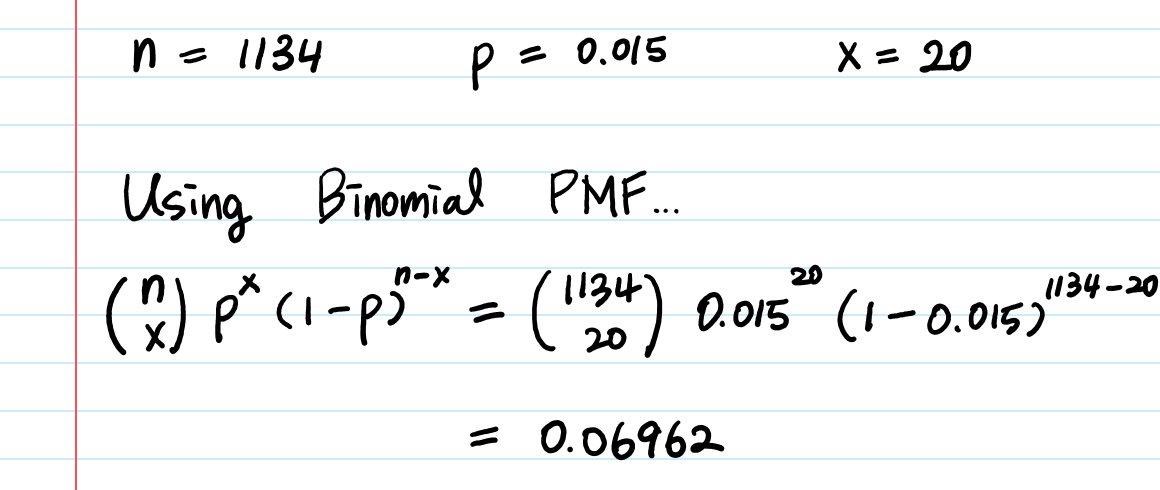 n = 1134 p = 0.015 x = 20
Using Binomial PMF...
(n x) p^x (1-p)^{n-x} = (1134 20) 0.015^{20} (1-0.015)^{1134-20}
= 0.06962